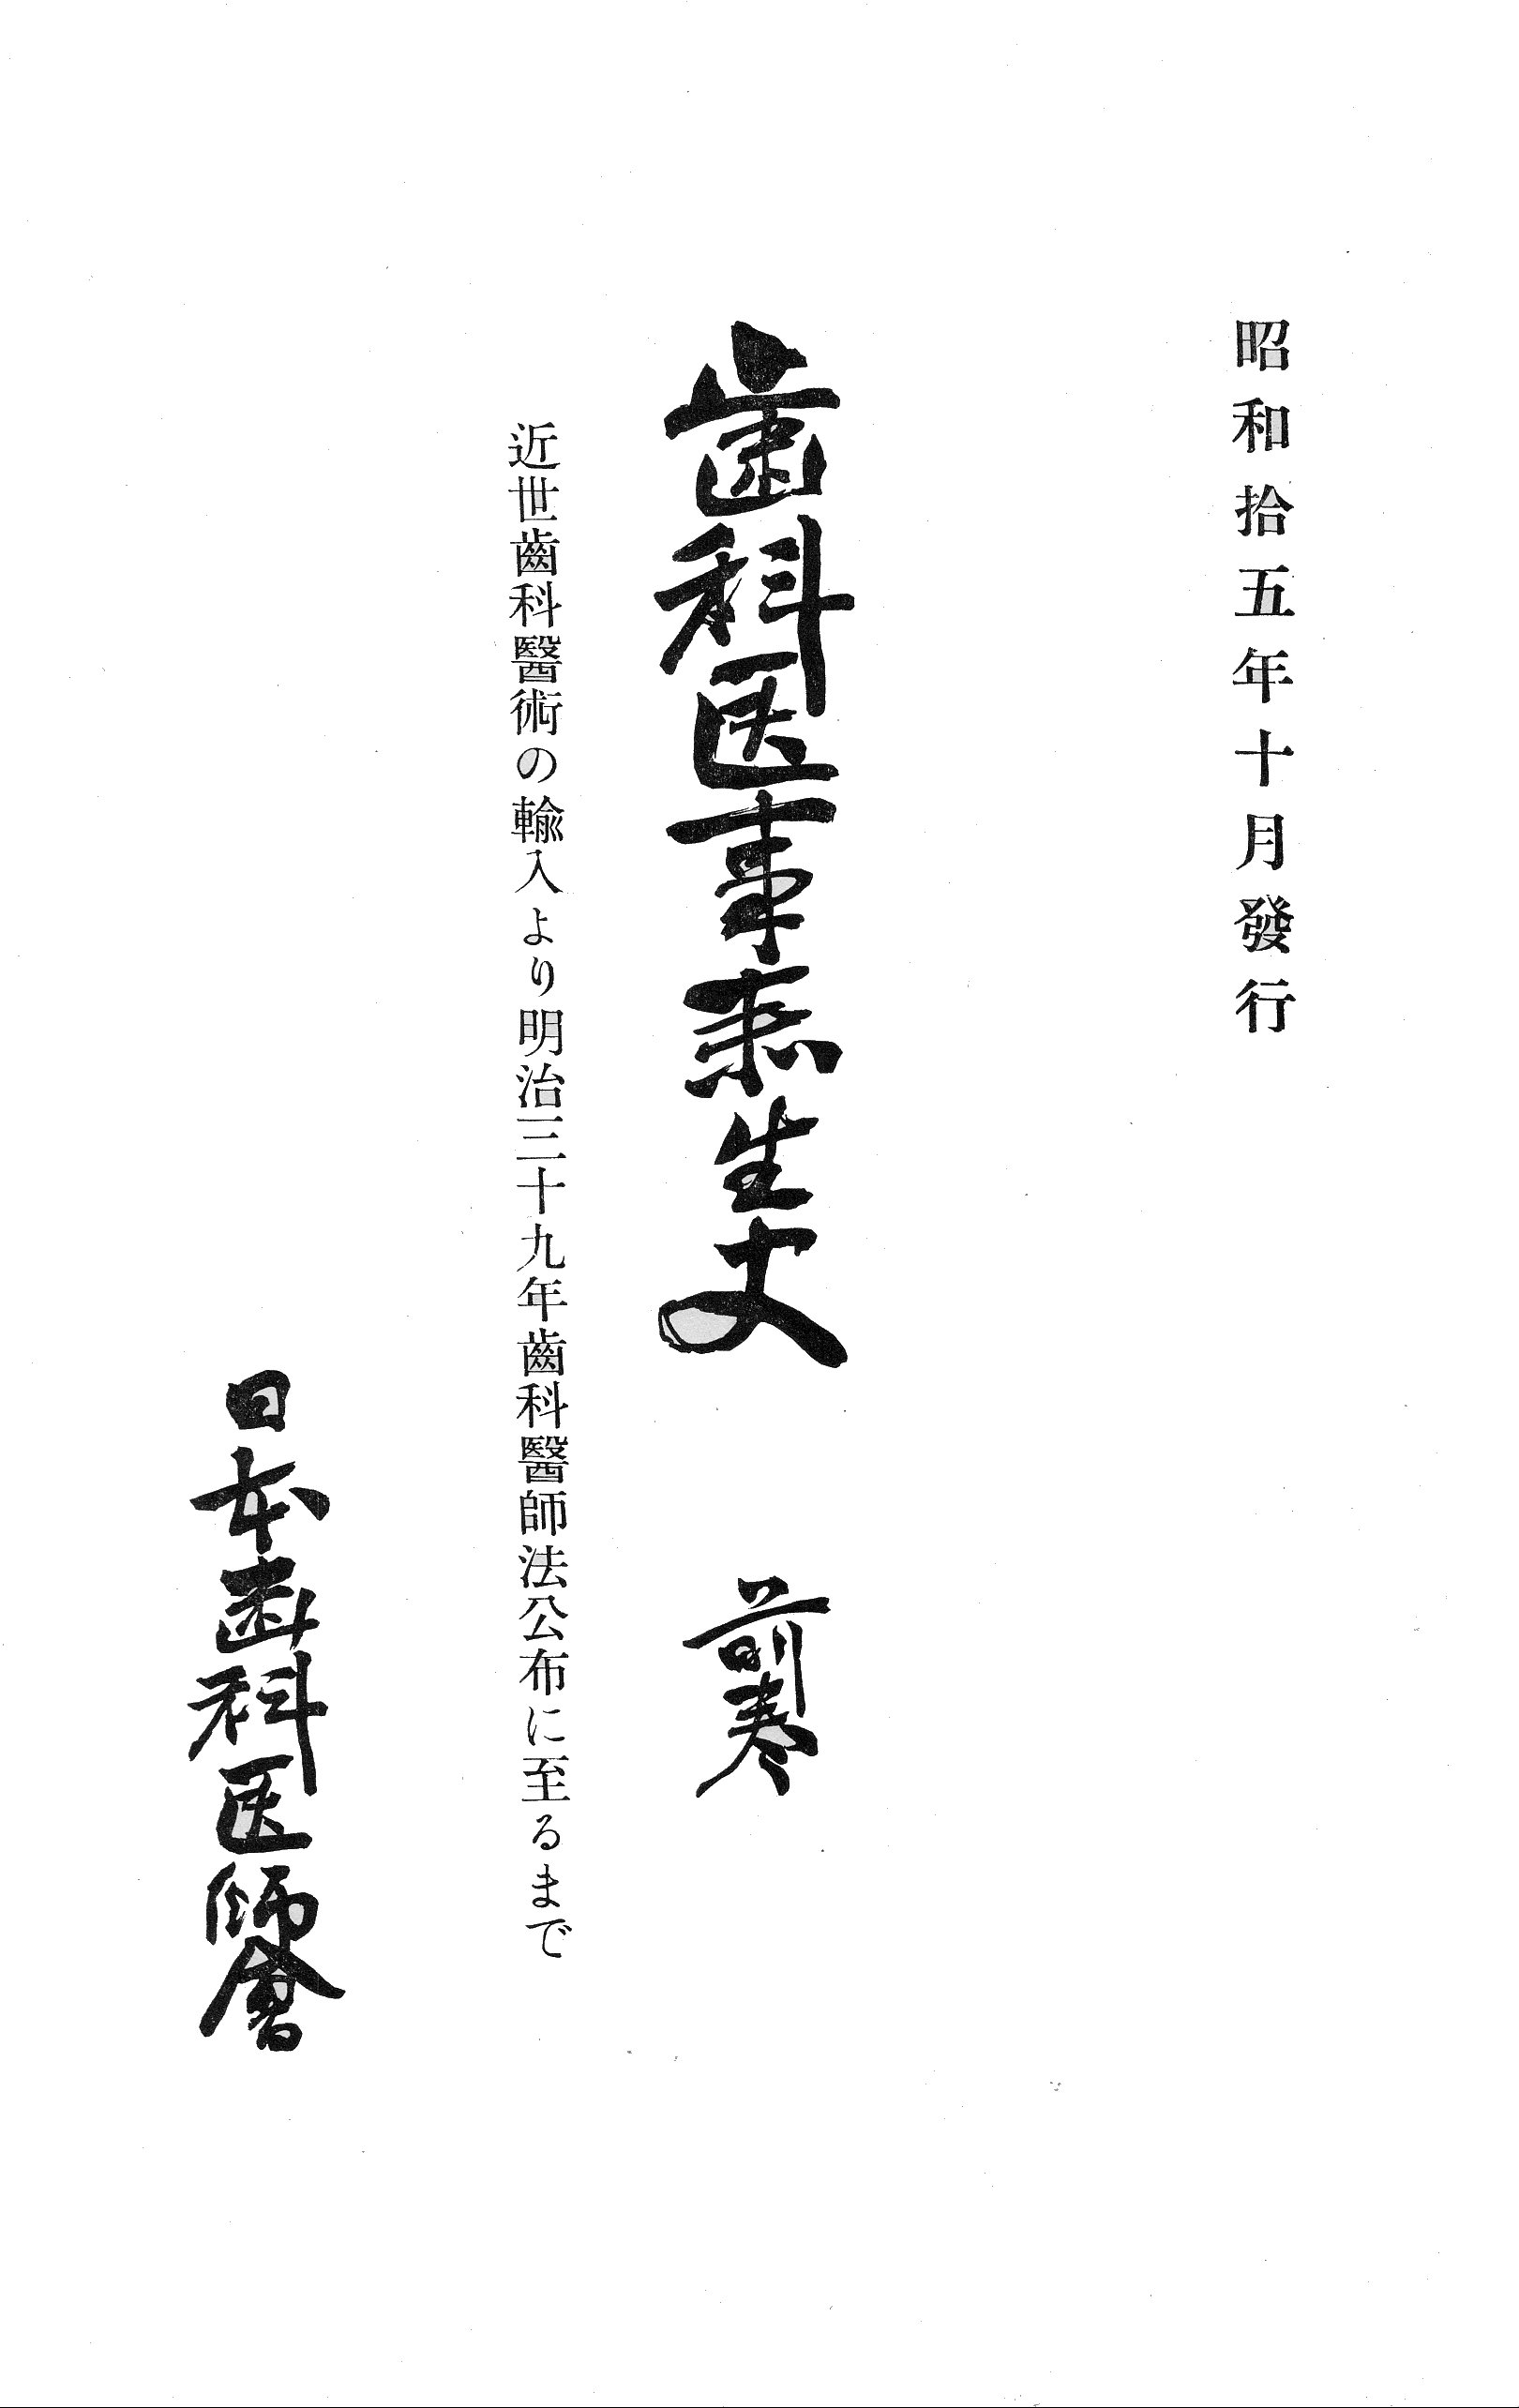 昭和拾五年十月發行
歯科医事衛生史 前巻
近世齒科醫術の輸入より明治三十九年齒科醫師法公布に至るまで
日本歯科医師會